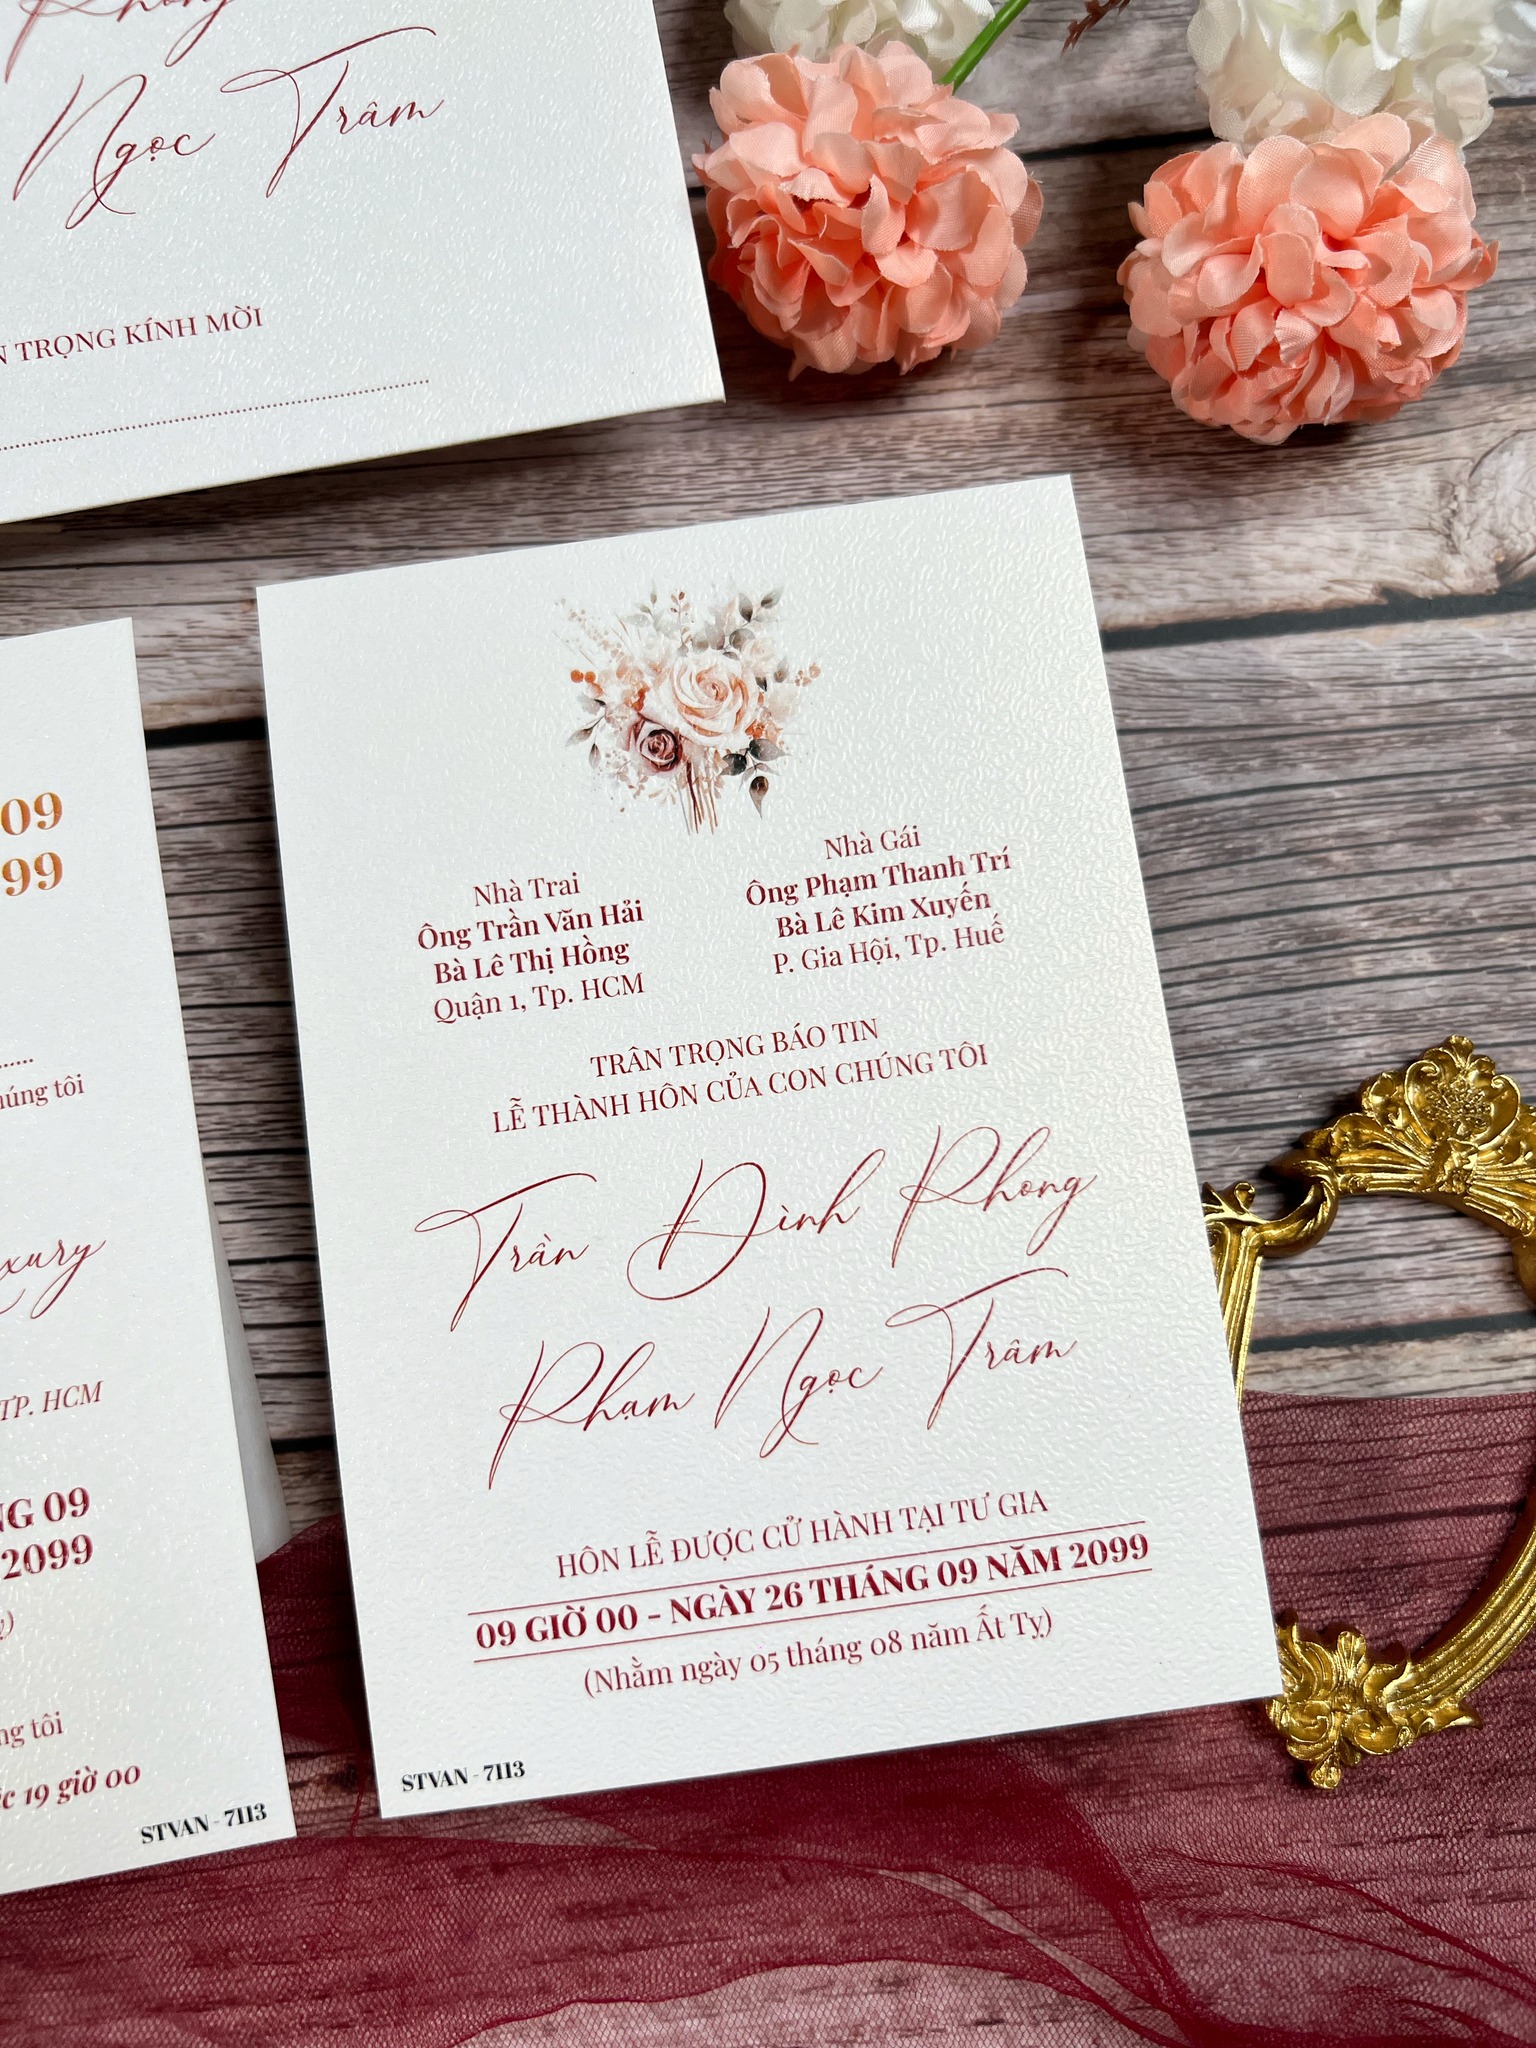 Ngọc Trâm
TRỌNG KÍNH MỜI
Nhà Trai
Ông Trần Văn Hải
Bà Lê Thị Hồng
Quận 1, Tp. HCM
Nhà Gái
Ông Phạm Thanh Trí
Bà Lê Kim Xuyến
P. Gia Hội, Tp. Huế
TRÂN TRỌNG BÁO TIN
LỄ THÀNH HÔN CỦA CON CHÚNG TÔI
Trần Đình Phong
Phạm Ngọc Trâm
HÔN LỄ ĐƯỢC CỬ HÀNH TẠI TƯ GIA
09 GIỜ 00 - NGÀY 26 THÁNG 09 NĂM 2099
(Nhằm ngày 05 tháng 08 năm Ất Tỵ)
STVAN - 7113
09
99
tôi
TP. HCM
09
2099
tôi
19 giờ 00
STVAN - 7113